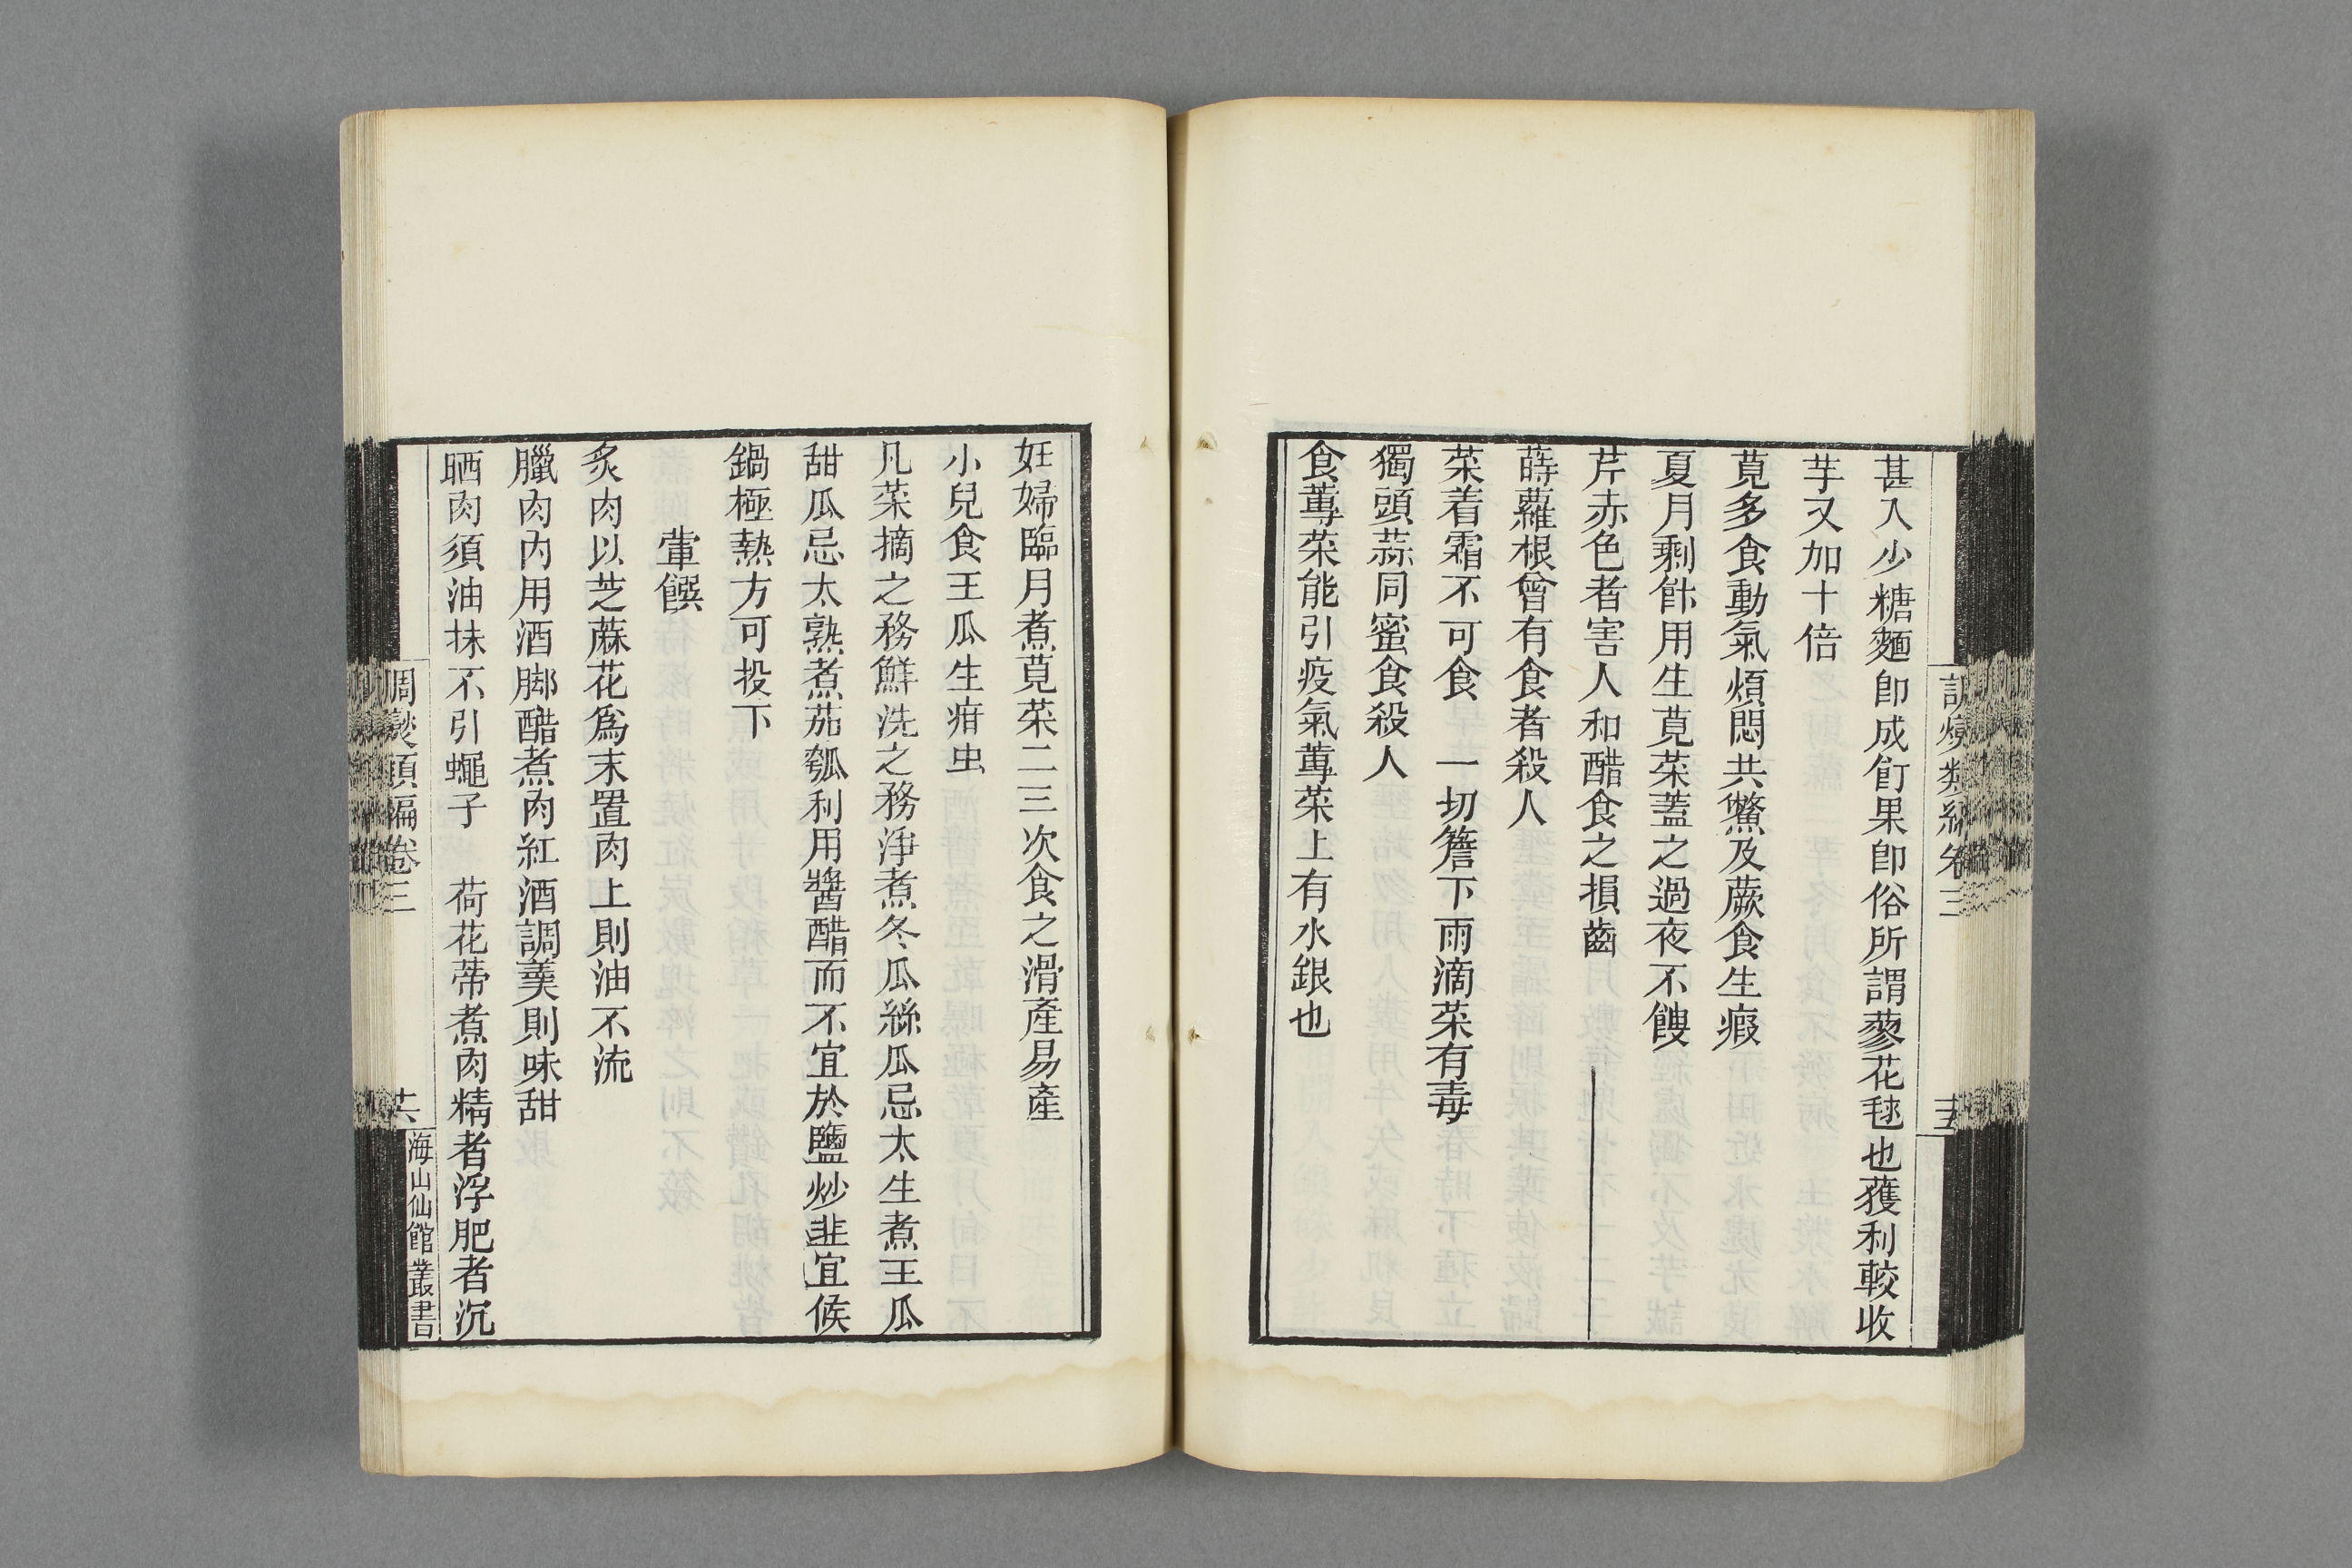 甚入少糖麵卽成飣果卽俗所謂蓼花毬也蒦利較收
芋又加十倍
莧多食動氣煩悶共鱉及蕨食生瘕
夏月剩飰用生莧菜蓋之過夜不餿
芹赤色者害人和醋食之損齒
蒔蘿根曾有食者殺人
菜着霜不可食 一切簷下雨滴菜有毒
獨頭蒜同蜜食殺人
食蓴菜能引疫氣蓴菜上有水銀也
妊婦臨月煮莧菜二三次食之滑產易產
小兒食王瓜生疳虫
凡菜摘之務鮮洗之務淨煮冬瓜絲瓜忌太生煮王瓜
甜瓜忌太熟煮茄瓠利用醬醋而不宜於鹽炒韭宜候
鍋極熱方可投下
葷饌
炙肉以芝蔴花爲末置肉上則油不流
臘肉內用酒腳醋煮肉紅酒調羹則味甜
晒肉須油抹不引蠅子 荷花蒂煮肉精者浮肥者沉
調燮類編卷三
海山仙館叢書